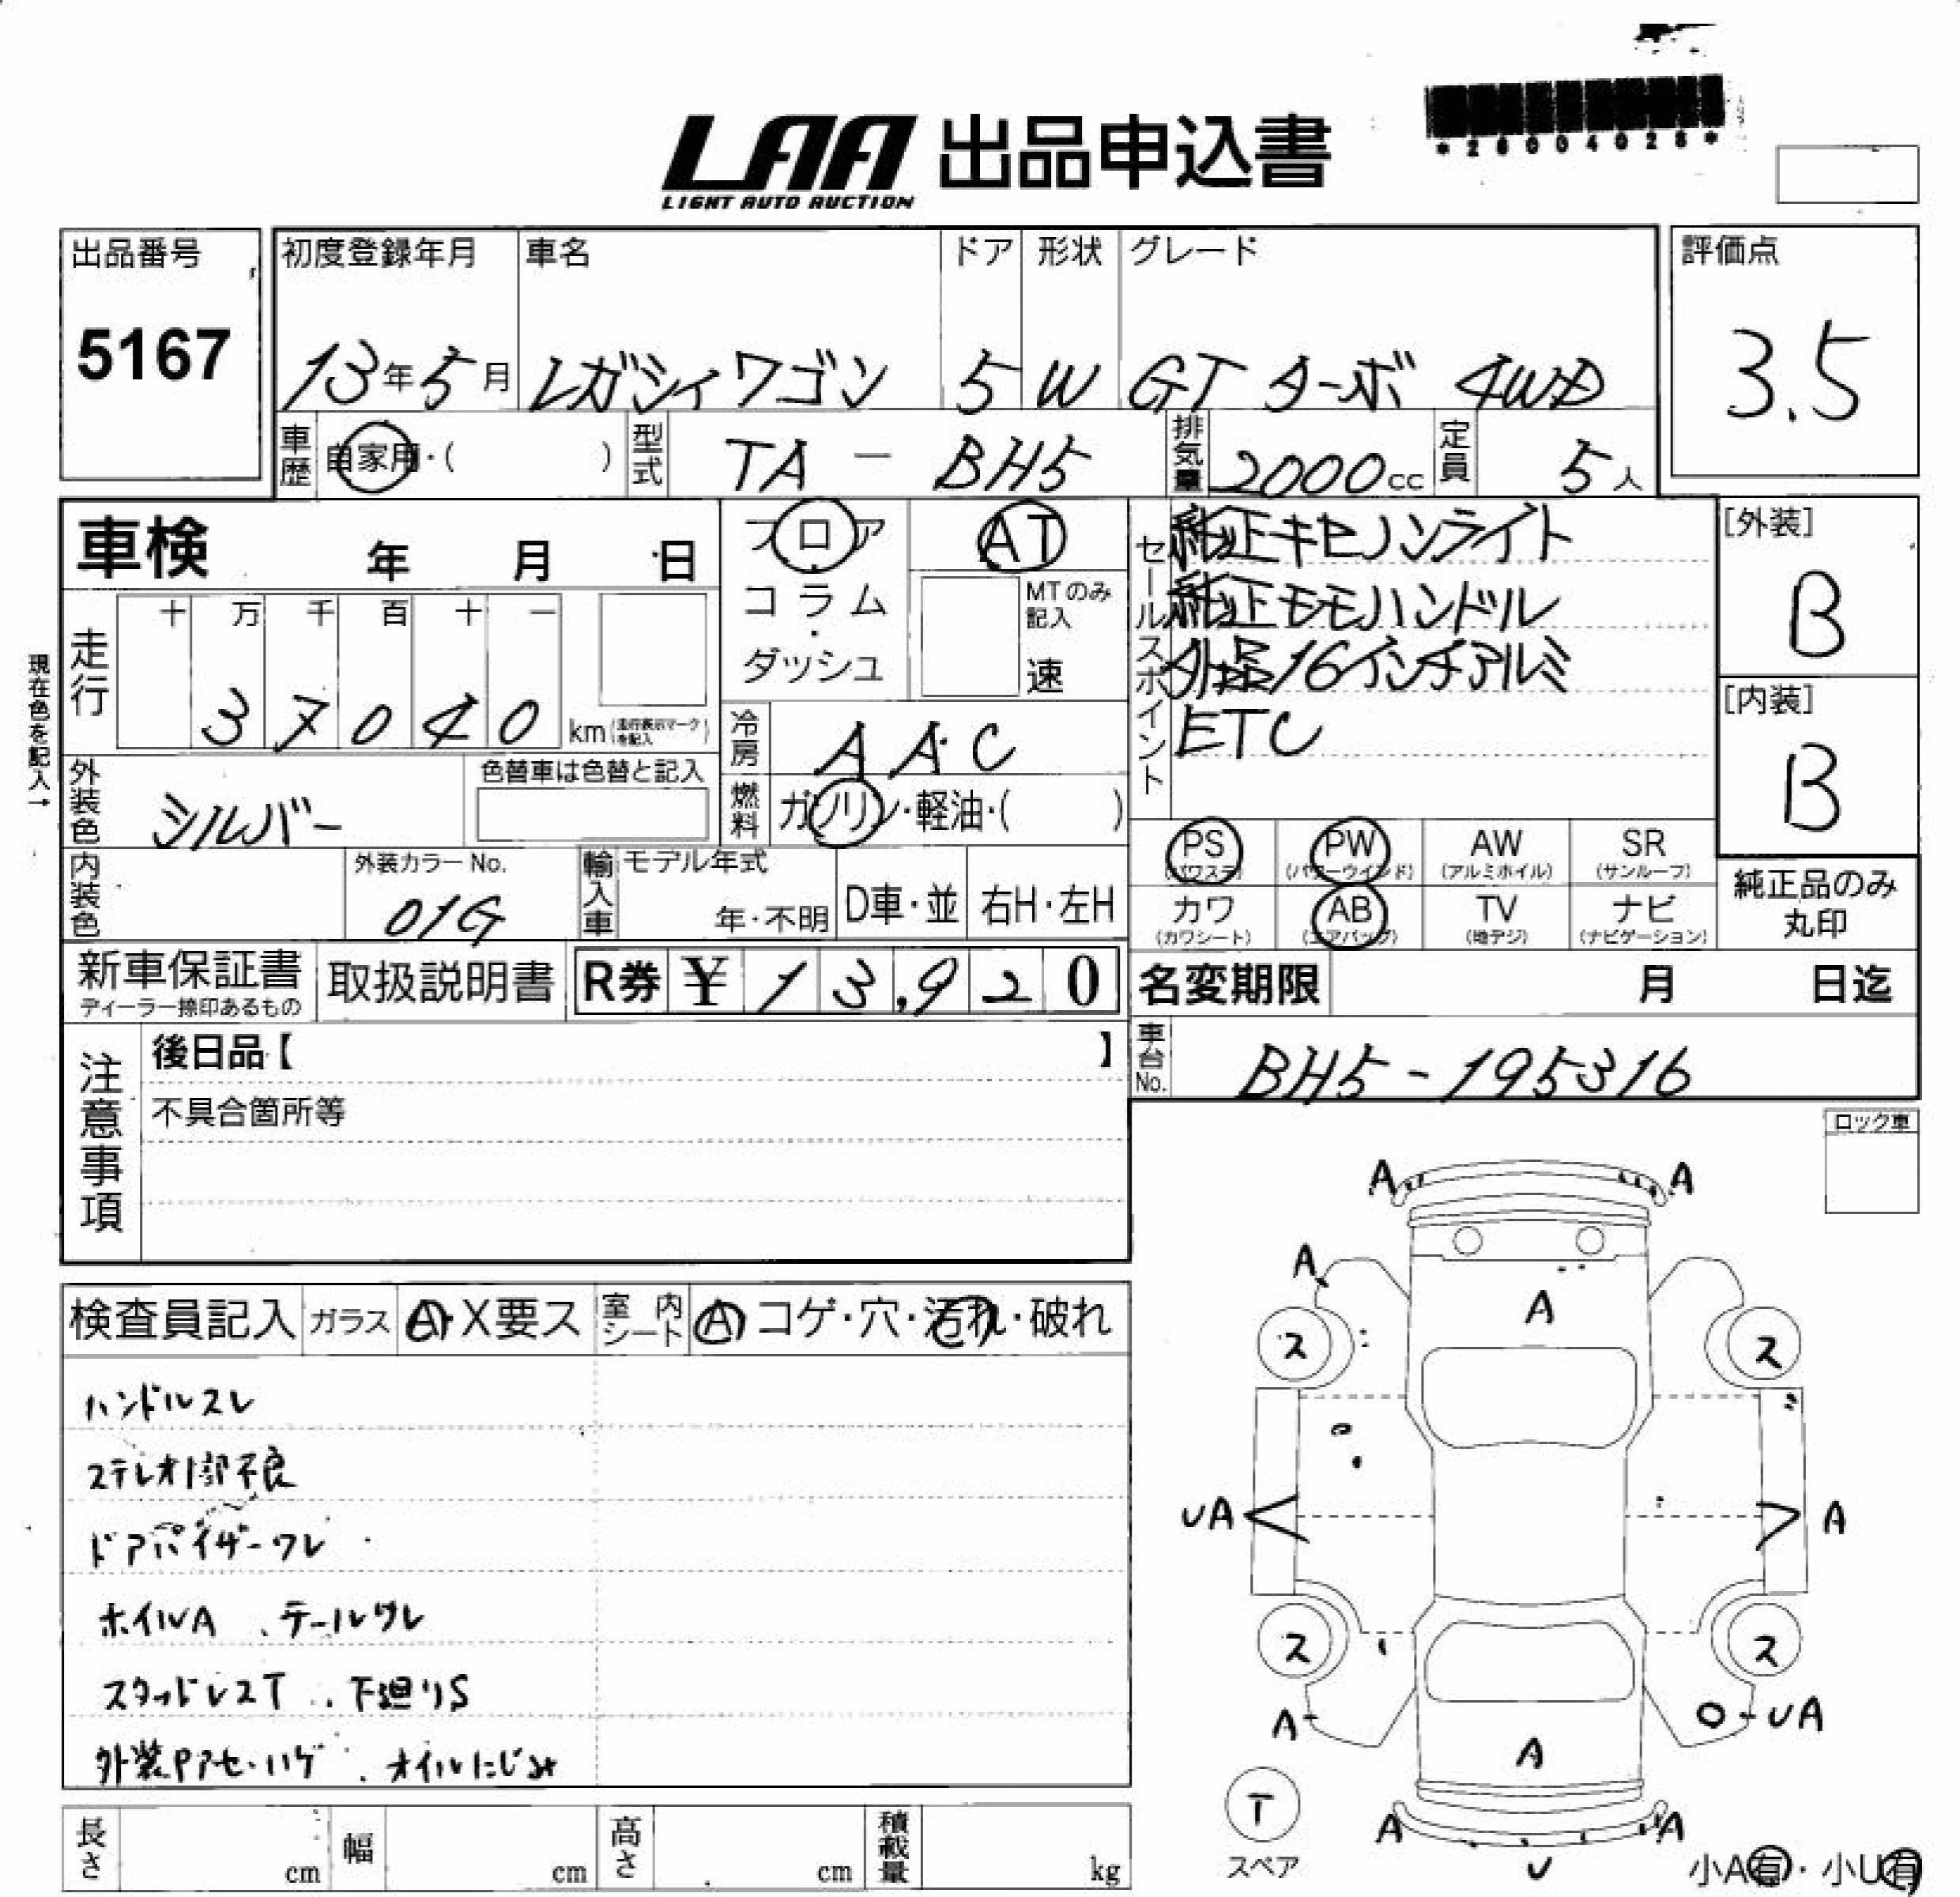 LAA 出品申込書
LIGHT AUTO AUCTION
*28004028*
出品番号
5167
初度登録年月
13年5月
車名
レガシィワゴン
ドア
5
形状
W
グレード
GT ターボ 4WD
評価点
3.5
車歴 自家用・( )
型式 TA - BH5
排気量 2000cc
定員 5人
車検 年 月 日
フロア
コラム
・
ダッシュ
AT
MTのみ記入
速
セールスポイント
純正キセノンライト
純正モモハンドル
外品16インチアルミ
ETC
[外装]
B
[内装]
B
現在色を記入→
走行
十 万 千 百 十 一
3 7 0 4 0 km (走行表示マークを記入)
冷房 AAC
燃料 ガソリン・軽油・( )
外装色 シルバー
色替車は色替と記入
内装色
外装カラーNo.
01G
輸入車
モデル年式
年・不明
D車・並
右H・左H
PS (パワステ)
PW (パワーウインド)
AW (アルミホイル)
SR (サンルーフ)
カワ (カワシート)
AB (エアバッグ)
TV (地デジ)
ナビ (ナビゲーション)
純正品のみ
丸印
新車保証書
ディーラー捺印あるもの
取扱説明書
R券 ¥ 13,920
名変期限 月 日迄
車台No. BH5-195316
注意事項
後日品【 】
不具合箇所等
ロック車
検査員記入
ガラス A・X要ス
室内シート A コゲ・穴・汚れ・破れ
ハンドルスレ
ステレオ1部不良
ドアバイザーワレ
ホイルA 、テールワレ
スタッドレスT 、下廻りS
外装Pアセ・ハゲ 、オイルにじみ
A A
A
A
ス ス
UA A
ス ス
A O-UA
A
T
スペア
A A
U
小A有・小U有
長さ cm
幅 cm
高さ cm
積載量 kg